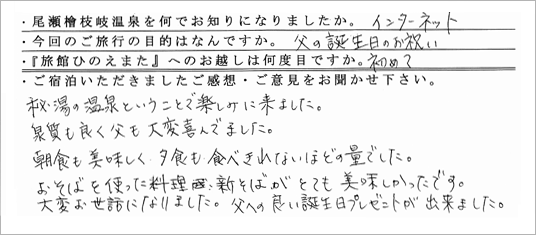 ・尾瀬檜枝岐温泉を何でお知りになりましたか。インターネット
・今回のご旅行の目的はなんですか。父の誕生日のお祝い
・『旅館ひのえまた』へのお越しは何度目ですか。初めて
・ご宿泊いただきましたご感想・ご意見をお聞かせ下さい。
秘湯の温泉ということで楽しみに来ました。
泉質も良く父も大変喜んでました。
朝食も美味しく夕食も食べきれないほどの量でした。
おそばを使った料理、新そばがとても美味しかったです。
大変お世話になりました。父への良い誕生日プレゼントが出来ました。